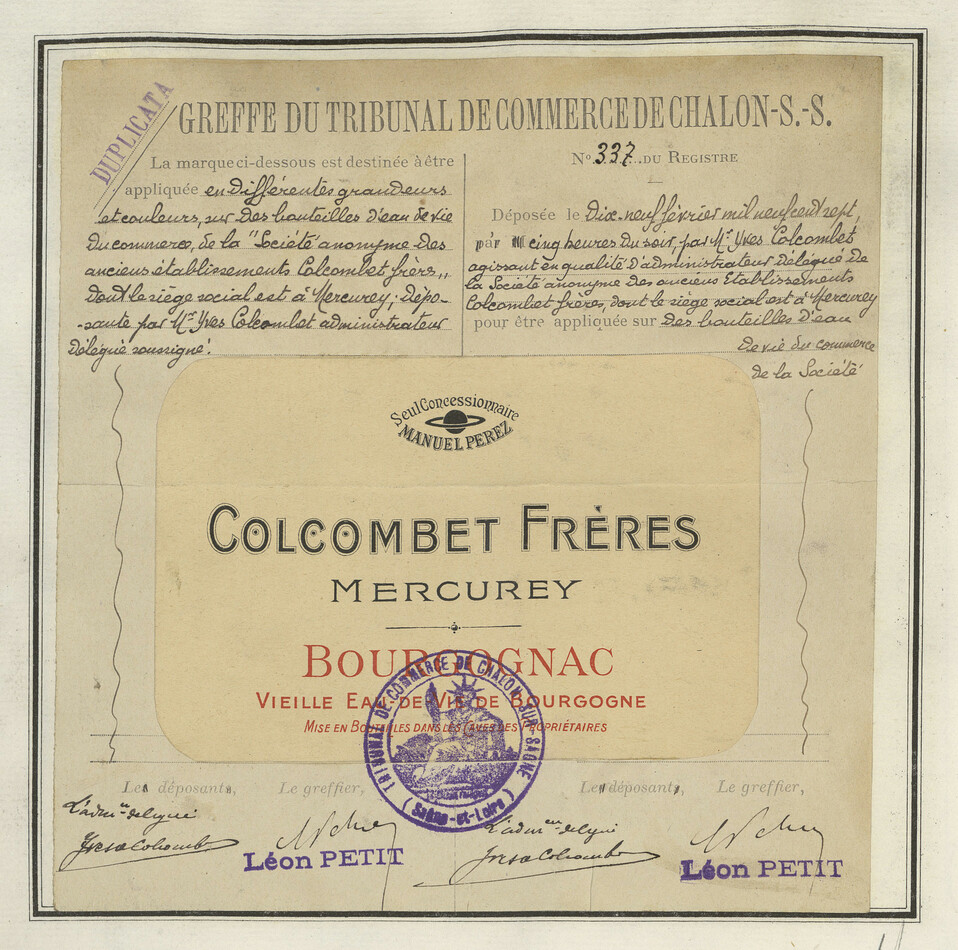 DUPLICATA
GREFFE DU TRIBUNAL DE COMMERCE DE CHALON-S.-S.
La marque ci-dessous est destinée à être
appliquée en différentes grandeurs
et couleurs, sur des bouteilles d'eau de vie
du commerce, de la "Société anonyme des
anciens établissements Colcombet frères,,
dont le siège social est à Mercurey; dépo-
-sante par Mr Yves Colcombet administrateur
délégué soussigné.
No 337 DU REGISTRE
Déposée le Dix-neuf février mil neuf cent sept,
par cinq heures du soir, par Mr Yves Colcombet
agissant en qualité d'administrateur délégué de
la Société anonyme des anciens Etablissements
Colcombet frères, dont le siège social est à Mercurey
pour être appliquée sur des bouteilles d'eau
de vie du commerce
de la Société
Seul Concessionnaire
MANUEL PEREZ
COLCOMBET FRÈRES
MERCUREY
BOURGOGNAC
VIEILLE EAU-DE-VIE DE BOURGOGNE
MISE EN BOUTEILLES DANS LES CAVES DES PROPRIÉTAIRES
TRIBUNAL DE COMMERCE DE CHALON-SUR-SAONE
(Saône-et-Loire)
Les déposants, Le greffier, Les déposants, Le greffier,
Léon PETIT
Léon PETIT